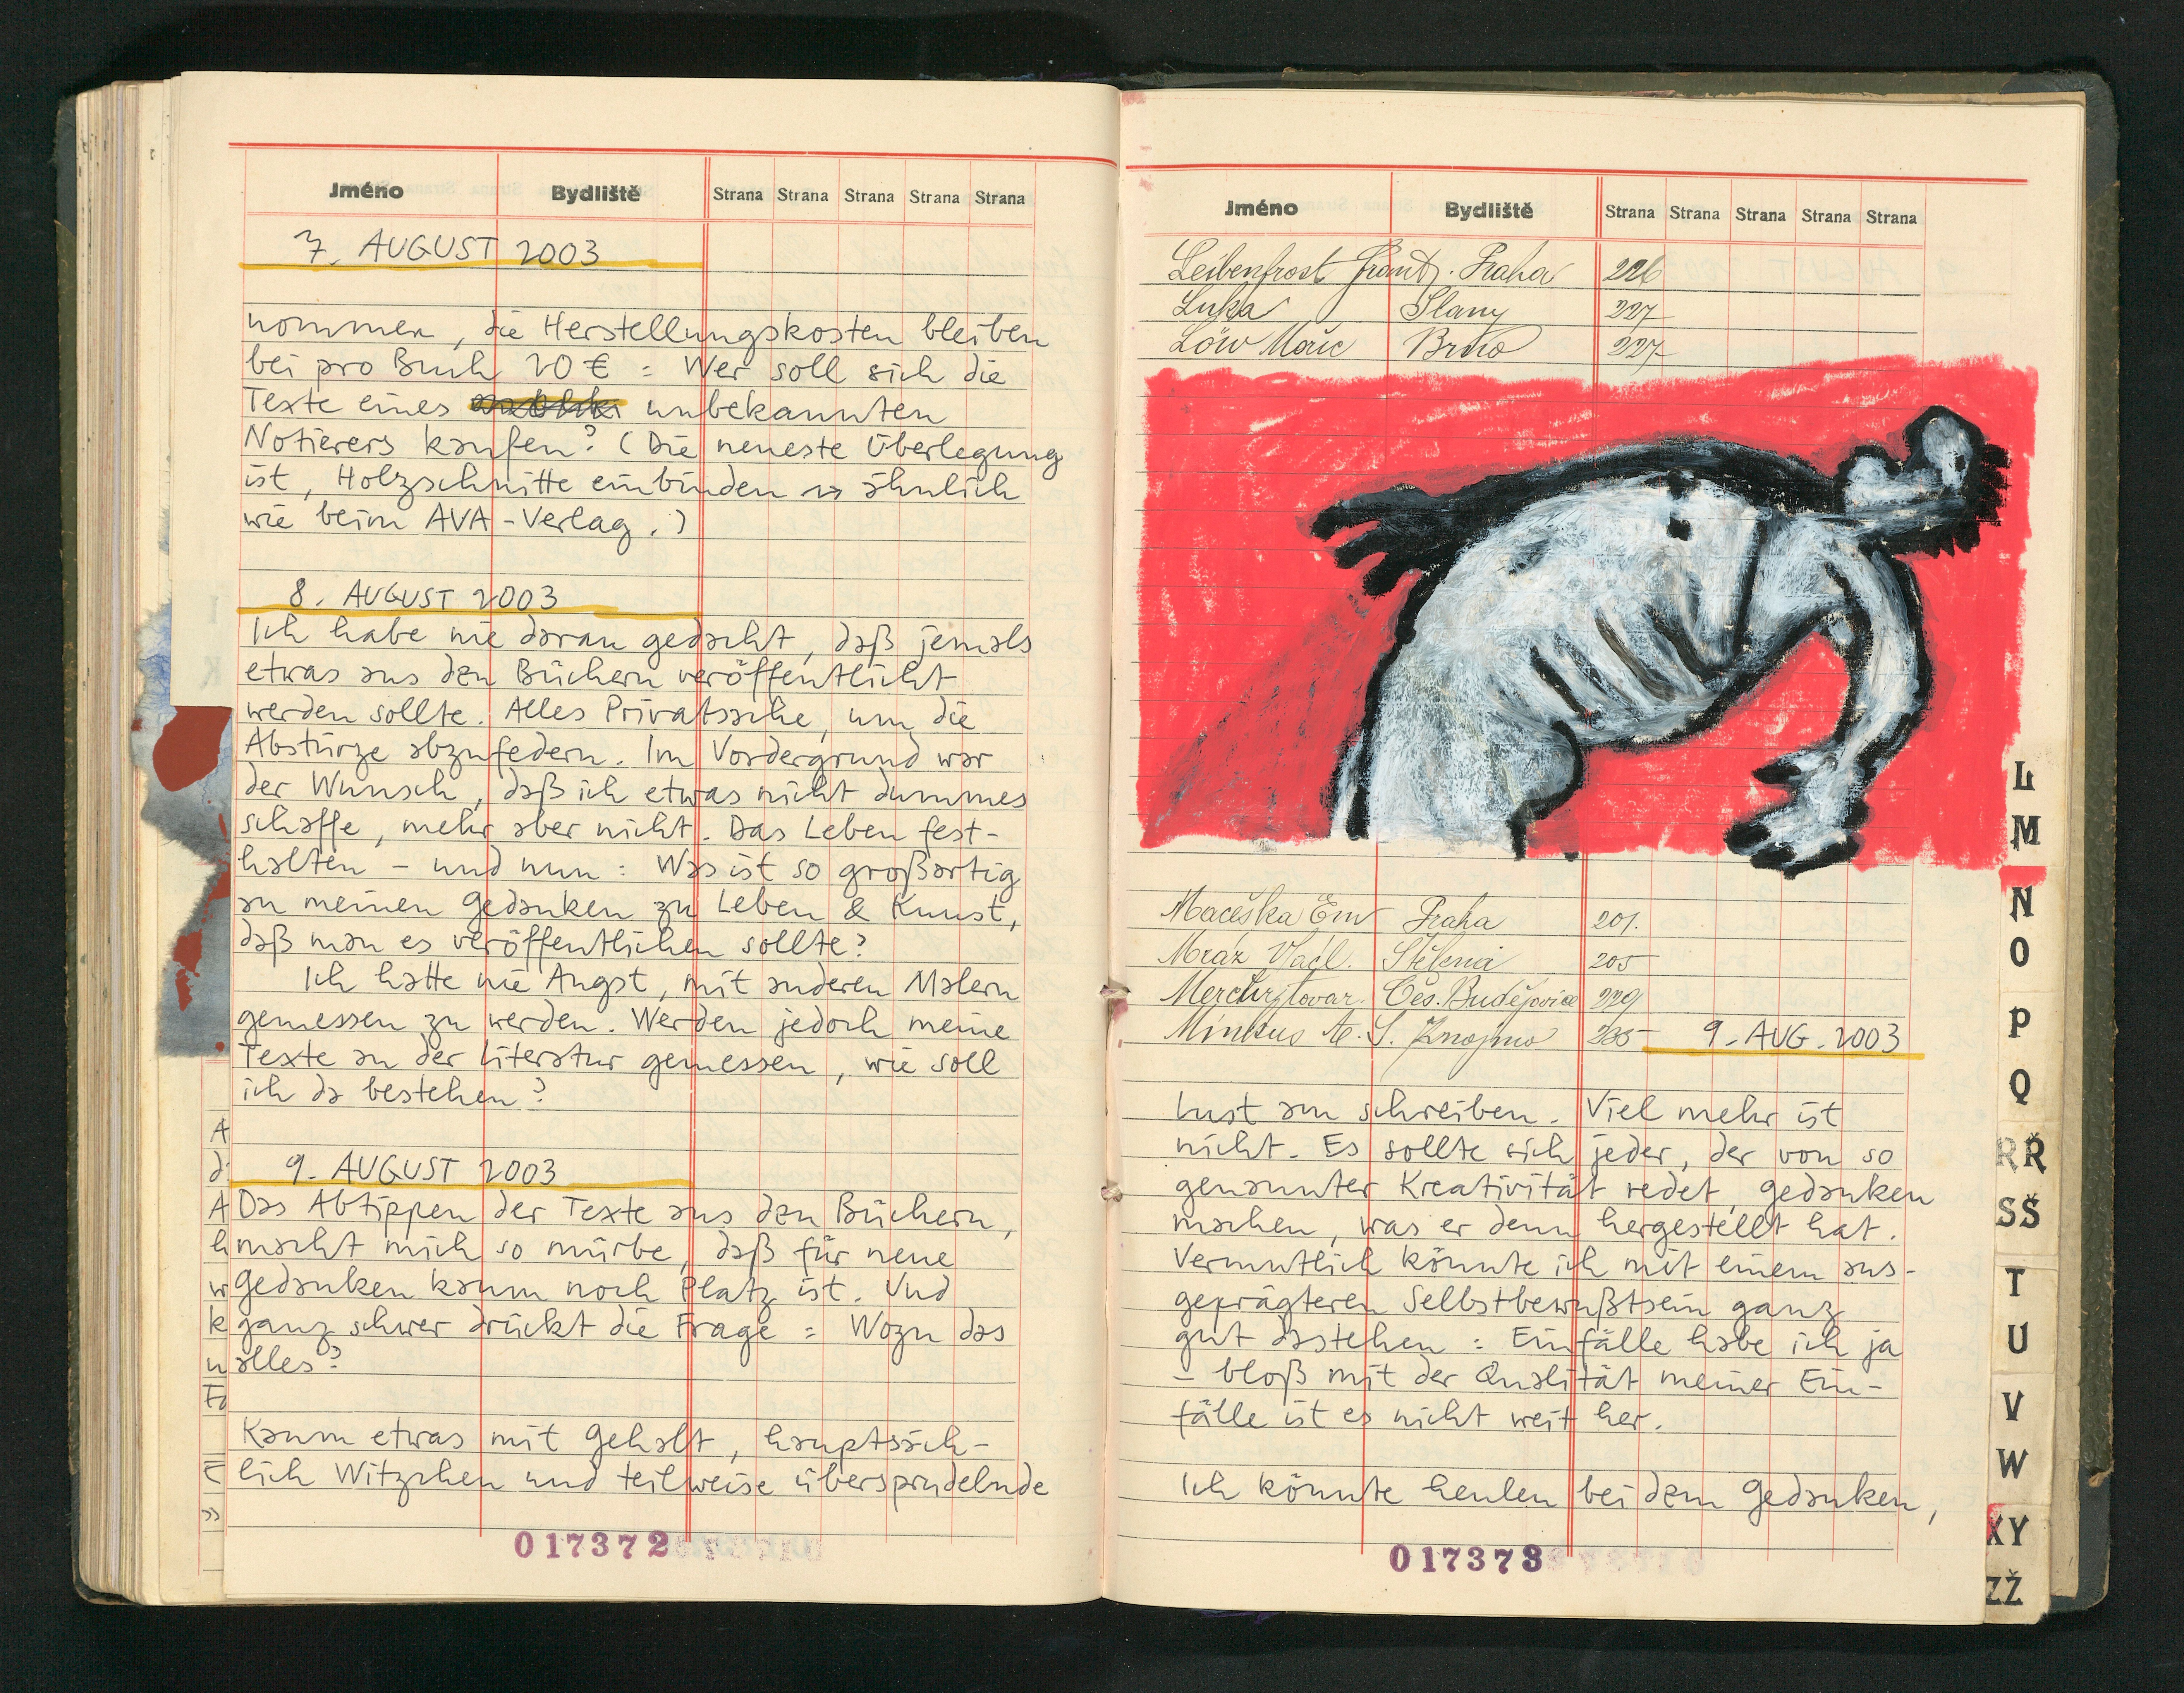 Jméno Bydliště Strana Strana Strana Strana Strana
7. AUGUST 2003
nommen, die Herstellungskosten bleiben
bei pro Buch 20 € : Wer soll sich die
Texte eines unbekannten
Notierers kaufen? (Die neueste Überlegung
ist, Holzschnitte einbinden → ähnlich
wie beim AVA-Verlag.)
8. AUGUST 2003
Ich habe nie daran gedacht, daß jemals
etwas aus den Büchern veröffentlicht
werden sollte. Alles Privatsache, um die
Abstürze abzufedern. Im Vordergrund war
der Wunsch, daß ich etwas nicht dummes
schaffe, mehr aber nicht. Das Leben fest-
halten – und nun : Was ist so großartig
an meinen Gedanken zu Leben & Kunst,
daß man es veröffentlichen sollte?
Ich hatte nie Angst, mit anderen Malern
gemessen zu werden. Werden jedoch meine
Texte an der Literatur gemessen, wie soll
ich da bestehen?
9. AUGUST 2003
Das Abtippen der Texte aus den Büchern,
macht mich so mürbe, daß für neue
Gedanken kaum noch Platz ist. Und
ganz schwer drückt die Frage : Wozu das
alles?
Kaum etwas mit Gehalt, hauptsäch-
lich Witzchen und teilweise übersprudelnde
017372
Jméno Bydliště Strana Strana Strana Strana Strana
Leibenfrost Frant. Praha 226
Luka Slany 227
Löw Moric Brno 227
Maceška Em Praha 201.
Mráz Vladl. 205
Merkur tovar. Čes. Budějovice 229
Minkus A. S. Znojmo 235 9. AUG. 2003
Lust am schreiben. Viel mehr ist
nicht. Es sollte sich jeder, der von so
genannter Kreativität redet, gedanken
machen, was er denn hergestellt hat.
Vermutlich könnte ich mit einem aus-
geprägteren Selbstbewußtsein ganz
gut dastehen : Einfälle habe ich ja
– bloß mit der Qualität meiner Ein-
fälle ist es nicht weit her.
Ich könnte heulen bei dem Gedanken,
017373
L
M
N
O
P
Q
RŘ
SŠ
T
U
V
W
XY
ZŽ